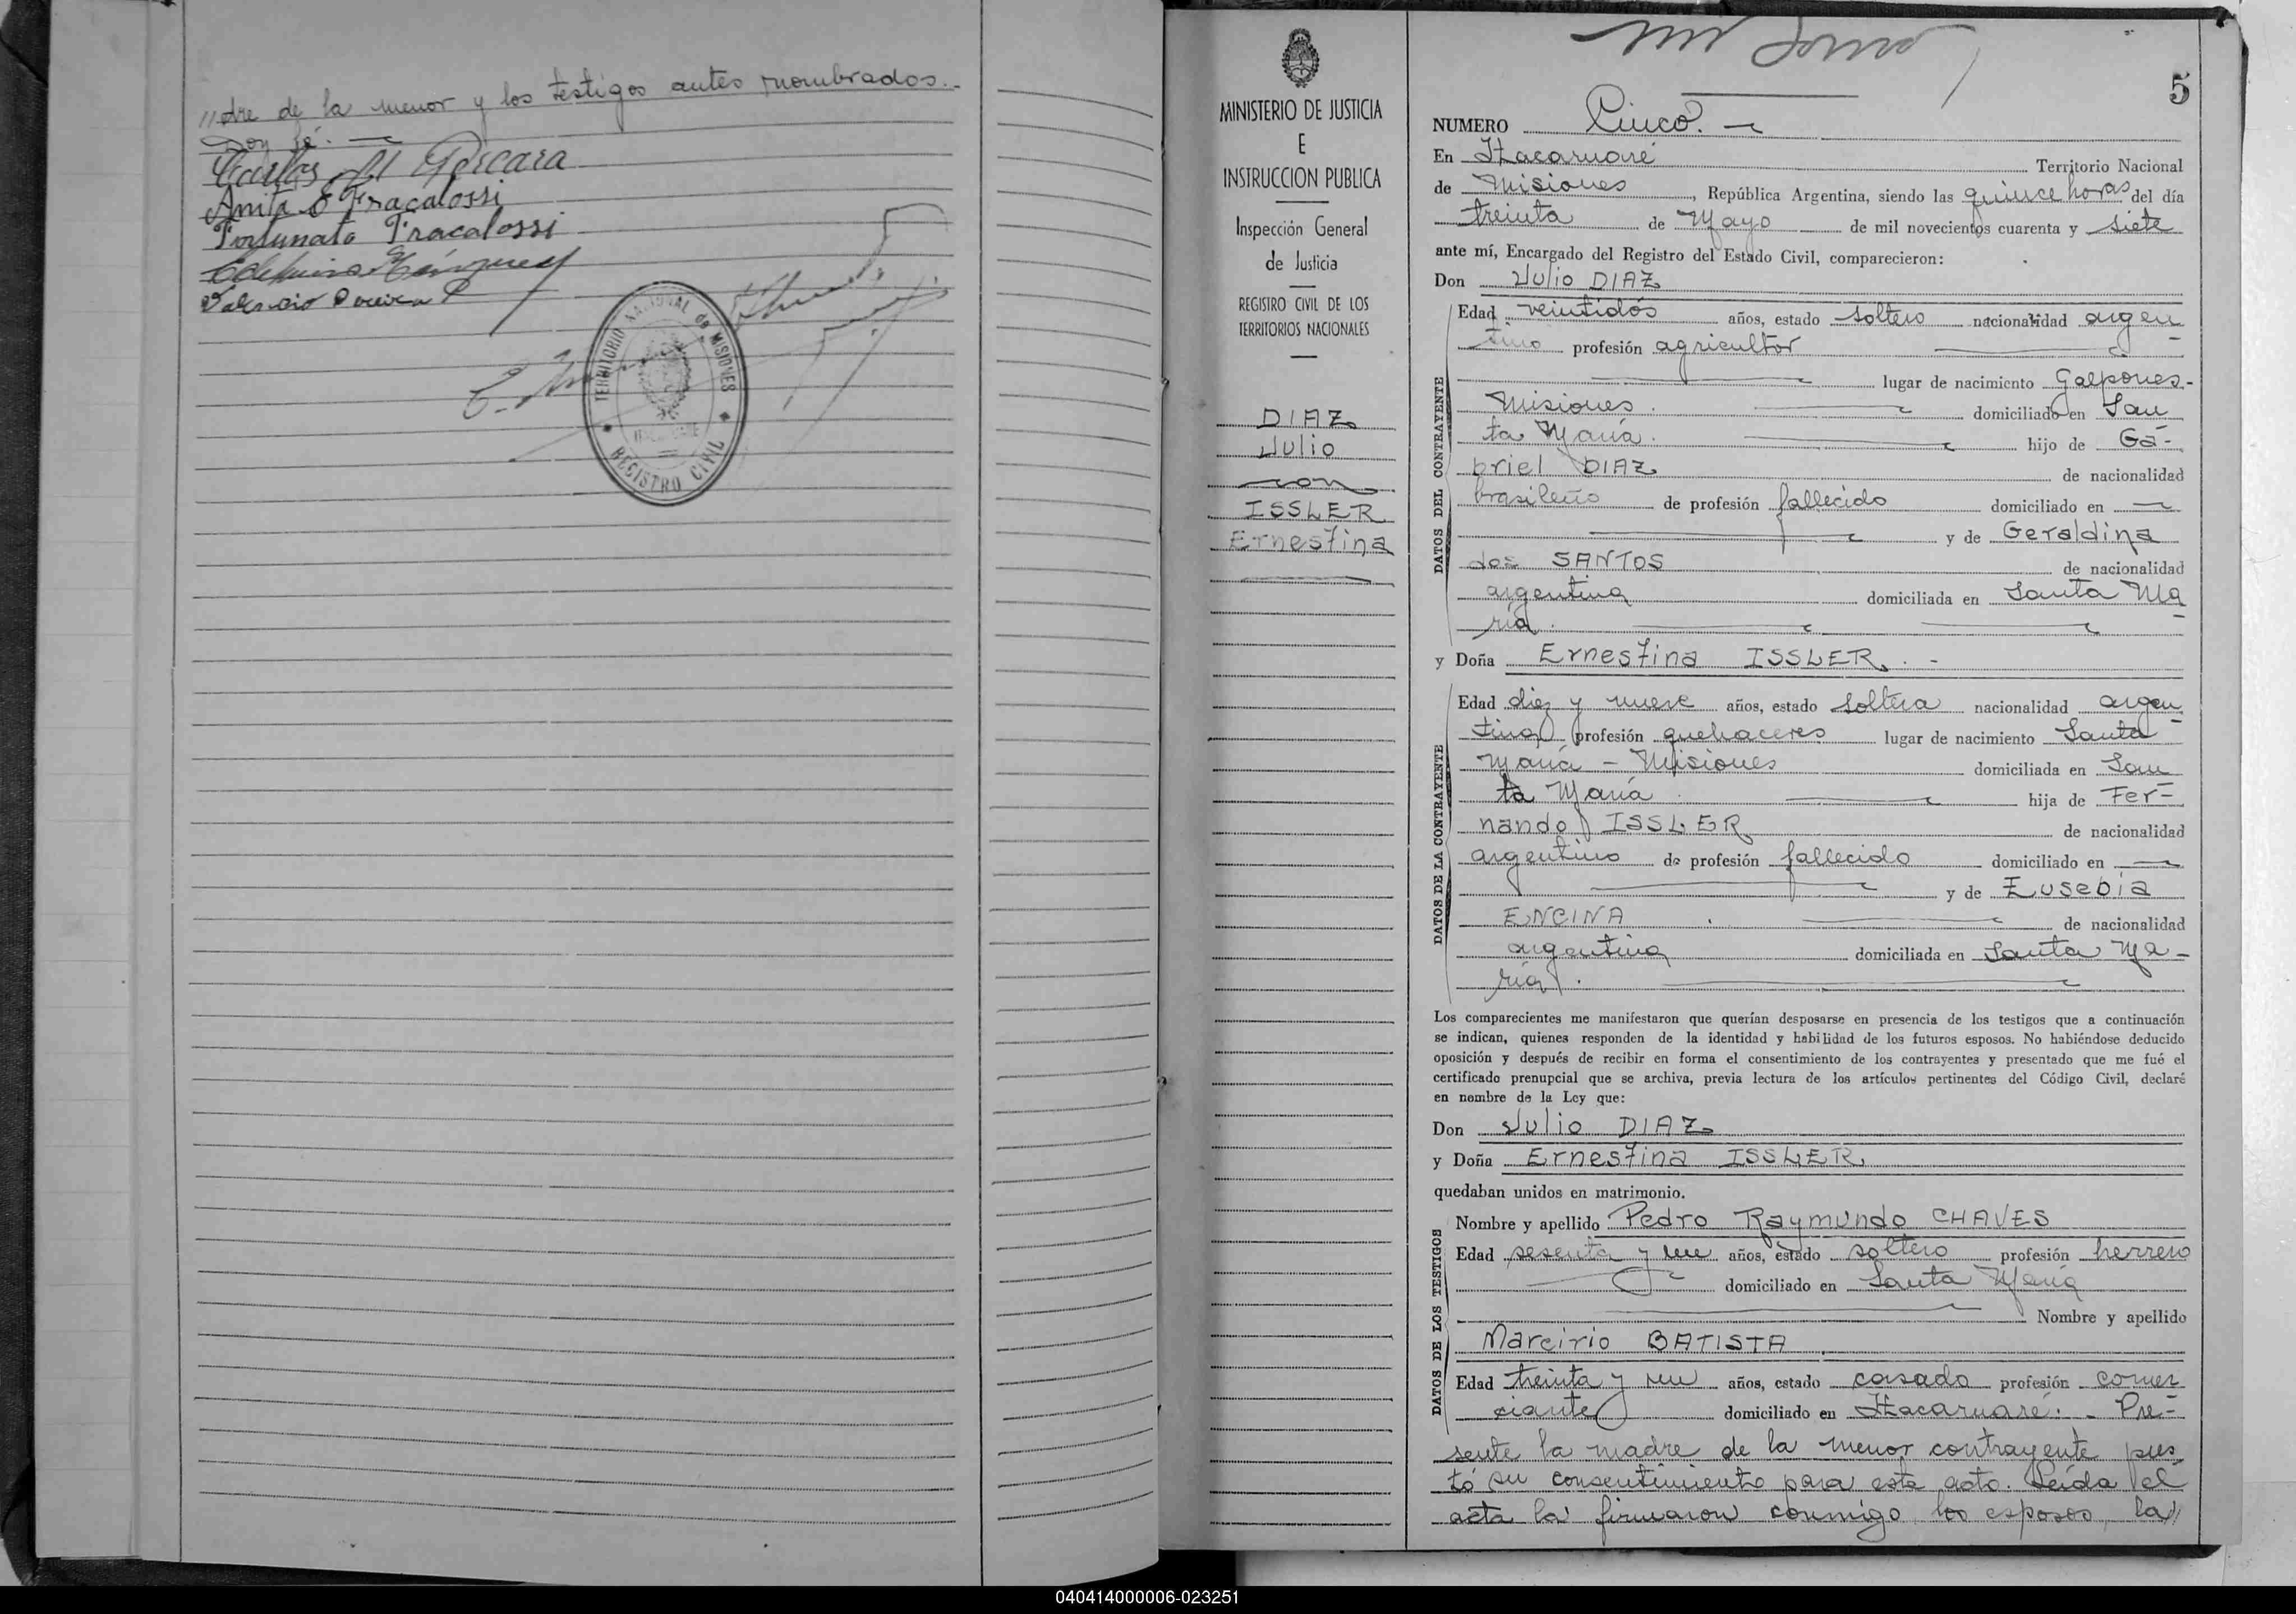 //dre de la menor y los testigos antes nombrados.-
Doy fé.
Carlos
Anita E Fracalossi
Fortunato Fracalossi
TERRITORIO NACIONAL de MISIONES
REGISTRO CIVIL
MINISTERIO DE JUSTICIA
E
INSTRUCCION PUBLICA
Inspección General
de Justicia
REGISTRO CIVIL DE LOS
TERRITORIOS NACIONALES
DIAZ
Julio
con
ISSLER
Ernestina
5
NUMERO Cinco.
En Itacaruaré Territorio Nacional
de Misiones, República Argentina, siendo las quince horas del día
treinta de Mayo de mil novecientos cuarenta y siete
ante mí, Encargado del Registro del Estado Civil, comparecieron:
Don Julio DIAZ
DATOS DEL CONTRAYENTE
Edad veintidós años, estado soltero nacionalidad argen
tino profesión agricultor
lugar de nacimiento Galpones-
Misiones. domiciliado en San
ta María. hijo de Ga-
briel DIAZ de nacionalidad
brasileño de profesión fallecido domiciliado en
y de Geraldina
dos SANTOS de nacionalidad
argentina domiciliada en Santa Ma
ría.
y Doña Ernestina ISSLER. -
DATOS DE LA CONTRAYENTE
Edad diez y nueve años, estado soltera nacionalidad argen
tina profesión quehaceres lugar de nacimiento Santa
María - Misiones domiciliada en San
ta María hija de Fer-
nando ISSLER de nacionalidad
argentino de profesión fallecido domiciliado en
y de Eusebia
ENCINA . de nacionalidad
argentina domiciliada en Santa Ma-
ría.
Los comparecientes me manifestaron que querían desposarse en presencia de los testigos que a continuación
se indican, quienes responden de la identidad y habilidad de los futuros esposos. No habiéndose deducido
oposición y después de recibir en forma el consentimiento de los contrayentes y presentado que me fué el
certificado prenupcial que se archiva, previa lectura de los artículos pertinentes del Código Civil, declaré
en nombre de la Ley que:
Don Julio DIAZ
y Doña Ernestina ISSLER
quedaban unidos en matrimonio.
DATOS DE LOS TESTIGOS
Nombre y apellido Pedro Raymundo CHAVES
Edad sesenta y un años, estado soltero profesión herrero
domiciliado en Santa María
Nombre y apellido
Marcirio BATISTA
Edad treinta y un años, estado casado profesión comer
ciante domiciliado en Itacaruaré. - Pre-
sente la madre de la menor contrayente pres
tó su consentimiento para este acto. Leída el
acta la firmaron conmigo los esposos, la//
040414000006-023251